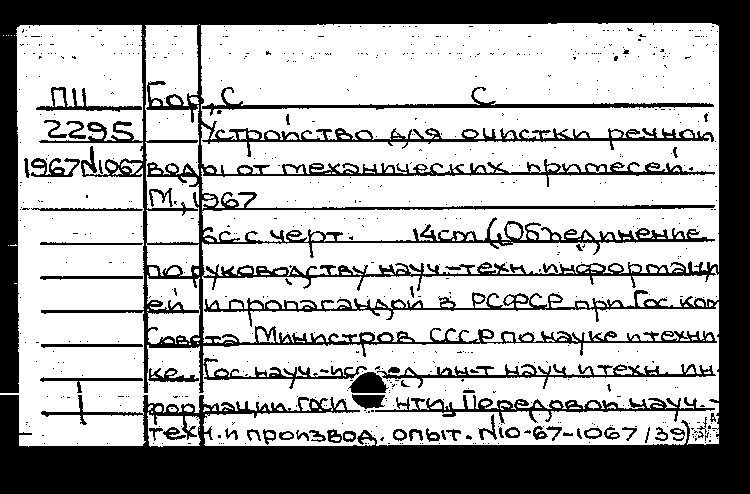 П11 Бор, С С
2295 Устройство для очистки речной
1967N1067 воды от механических примесей.
М., 1967
6с. с черт. 14cm (Объединение
по руководству науч.-техн. информаци
ей и пропагандой в РСФСР при Гос. ком
Совета Министров СССР по науке и техни-
ке. Гос. науч.-исслед. ин-т науч и техн. ин-
формации. ГОСИ НТИ, Передовой науч.-
техн. и производ. опыт. N10-67-1067/39)